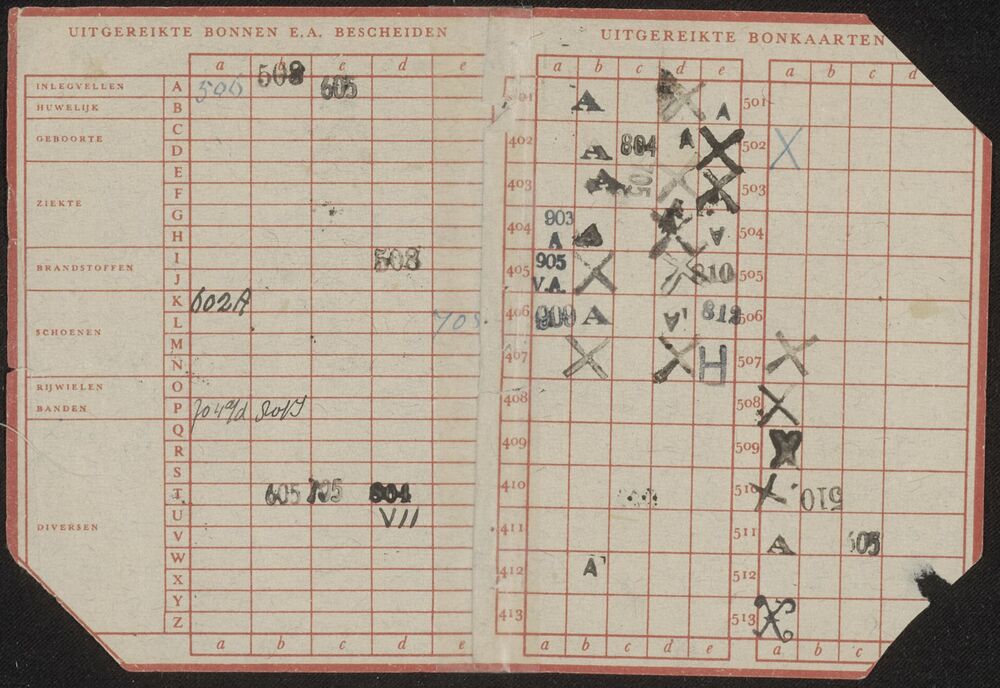 UITGEREIKTE BONNEN E.A. BESCHEIDEN
a c d e
508
INLEGVELLEN A 506 605
HUWELIJK B
C
GEBOORTE D
E
F
ZIEKTE
G
H
BRANDSTOFFEN I 508
J
K 602A
SCHOENEN L 705
M
N
RIJWIELEN O
BANDEN P
Q
R
S
T 605 705 804
U VII
DIVERSEN
V
W
X
Y
Z
a b c d e
UITGEREIKTE BONKAARTEN
a b c d e
A X A
402 A 804 A X
403 A 705 X X
903
404 A A
905
405 V.A. X 810
406 909 A A 812
407 X X H
408
409
410
411
412 A
413
a b c d e
a b c d
501
502 X
503
504
505
506
507 X
508 X
509 X
510 X 510
511 A 605
512
513 X
a b c